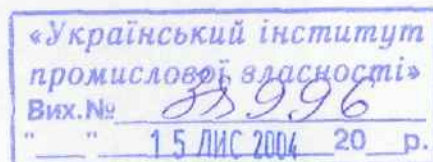 «Український інститут
промислової власності»
Вих.№
" " 15 ЛИС 2004 20 р.